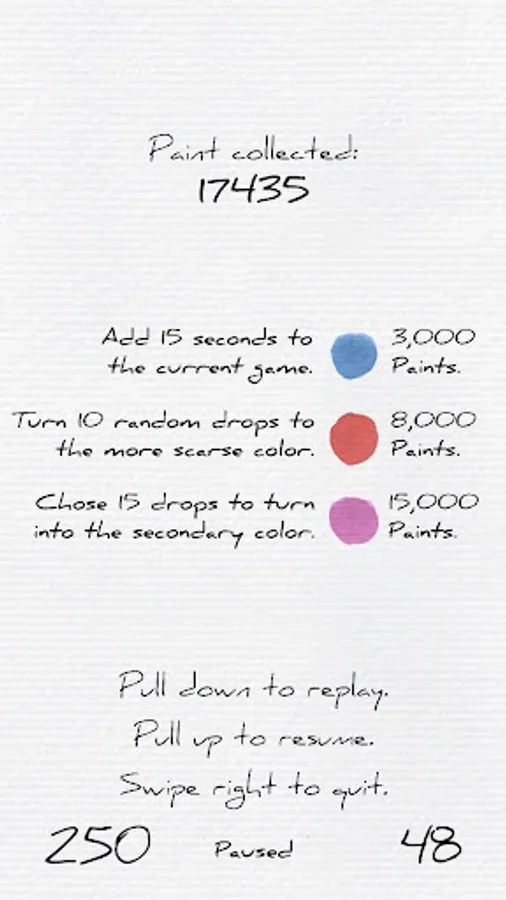 Paint collected:
17435
Add 15 seconds to
the current game.
3,000
Paints.
Turn 10 random drops to
the more scarse color.
8,000
Paints.
Chose 15 drops to turn
into the secondary color.
15,000
Paints.
Pull down to replay.
Pull up to resume.
Swipe right to quit.
250 Paused 48